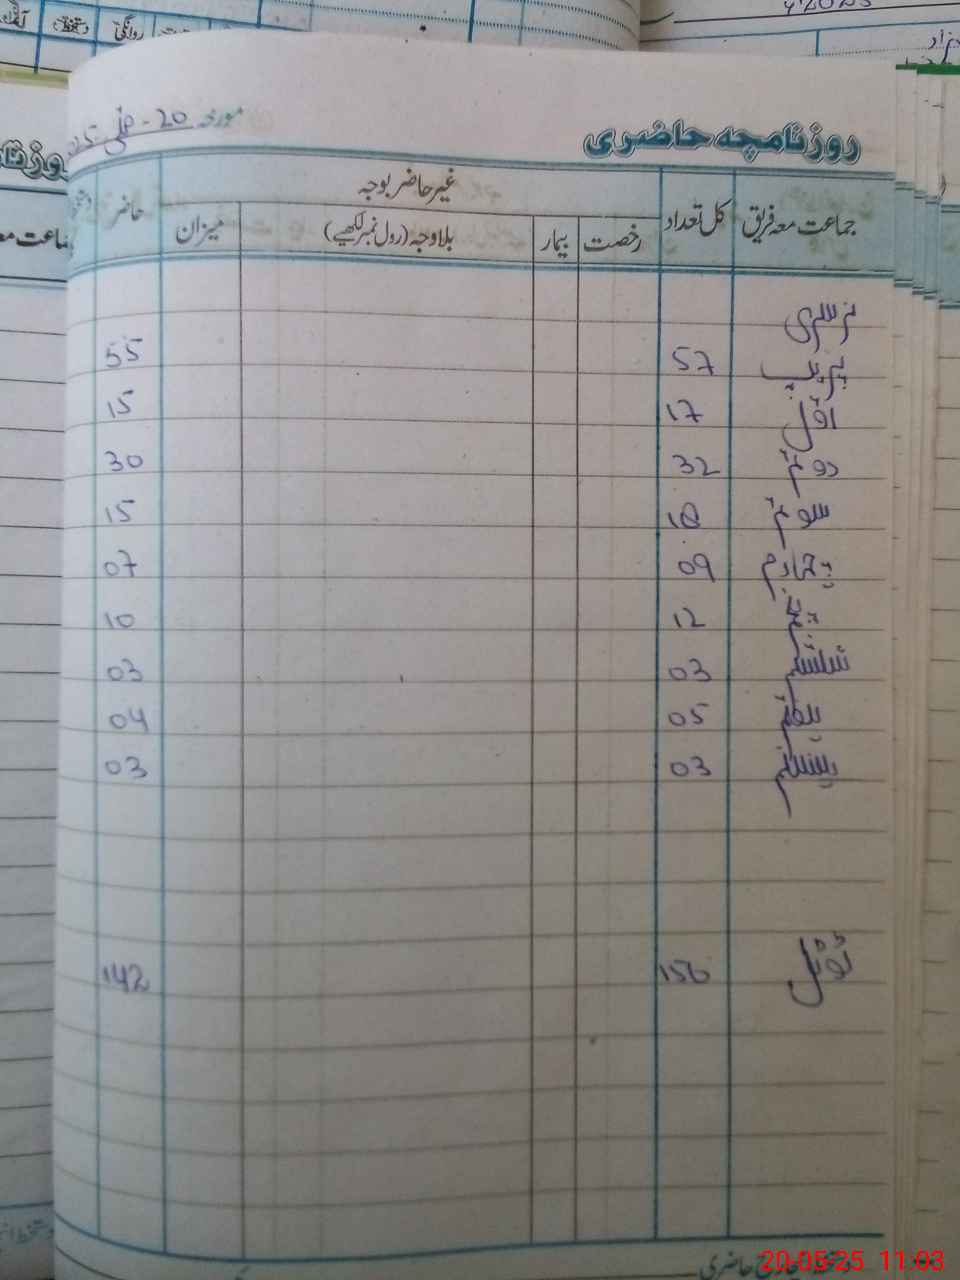 روزنامچہ حاضری
مورخہ 20 - مئی
جماعت معہ فریق کل تعداد غیر حاضر بوجہ حاضر
رخصت بیمار بلاوجہ (رول نمبر لکھیے) میزان
نرسری
پریپ 57 55
اول 17 15
دوئم 32 30
سوئم 18 15
چہارم 09 07
پنجم 12 10
ششم 03 03
ہفتم 05 04
ہشتم 03 03
ٹوٹل 156 142
حاضری
20-05-25 11:03